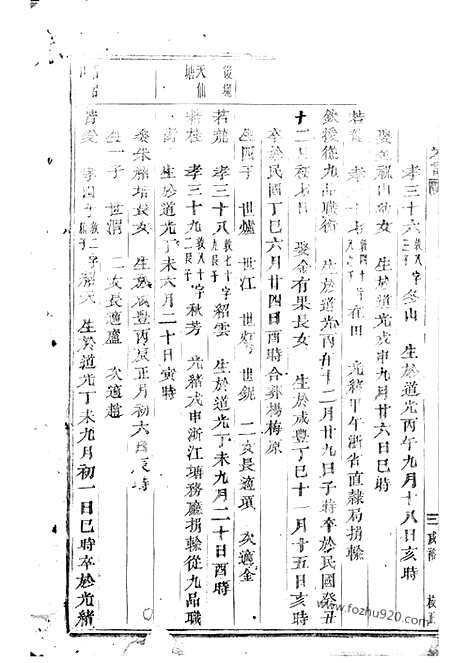 孝三十六 敦八 三子 字冬山 生於道光丙午九月十八日亥時
娶 福山 女 生於道光戊申九月廿六日巳時
若 孝三十七 敦四十 子 字在田 光緒甲午浙省直隸局捐輸
欽授從九品職銜 生於道光丙午十二月廿九日子時卒於民國癸丑
十二月初七日 娶金有果長女 生於咸豐丁巳十一月廿五日亥時
卒於民國丁巳六月廿四日酉時合葬楊梅原
生四子 世爐 世江 世 世銳 二女長適項 次適金
後塢
若龍 孝三十八 敦七十 長子 字紹雲 生於道光丁未九月二十日酉時
天仙塘
桂 孝三十九 敦八十 長子 字秋芳 光緒戊申浙江塘務廳捐輸從九品職
銜 生於道光丁未六月二十日寅時
娶朱 培長女 生於咸豐丙辰正月初六日辰時
生一子 世渭 二女長適盧 次適趙
孝四十 敦二 長子 字紹 生於道光丁未九月初一日巳時卒於光緒
三
www.fozhu920.com